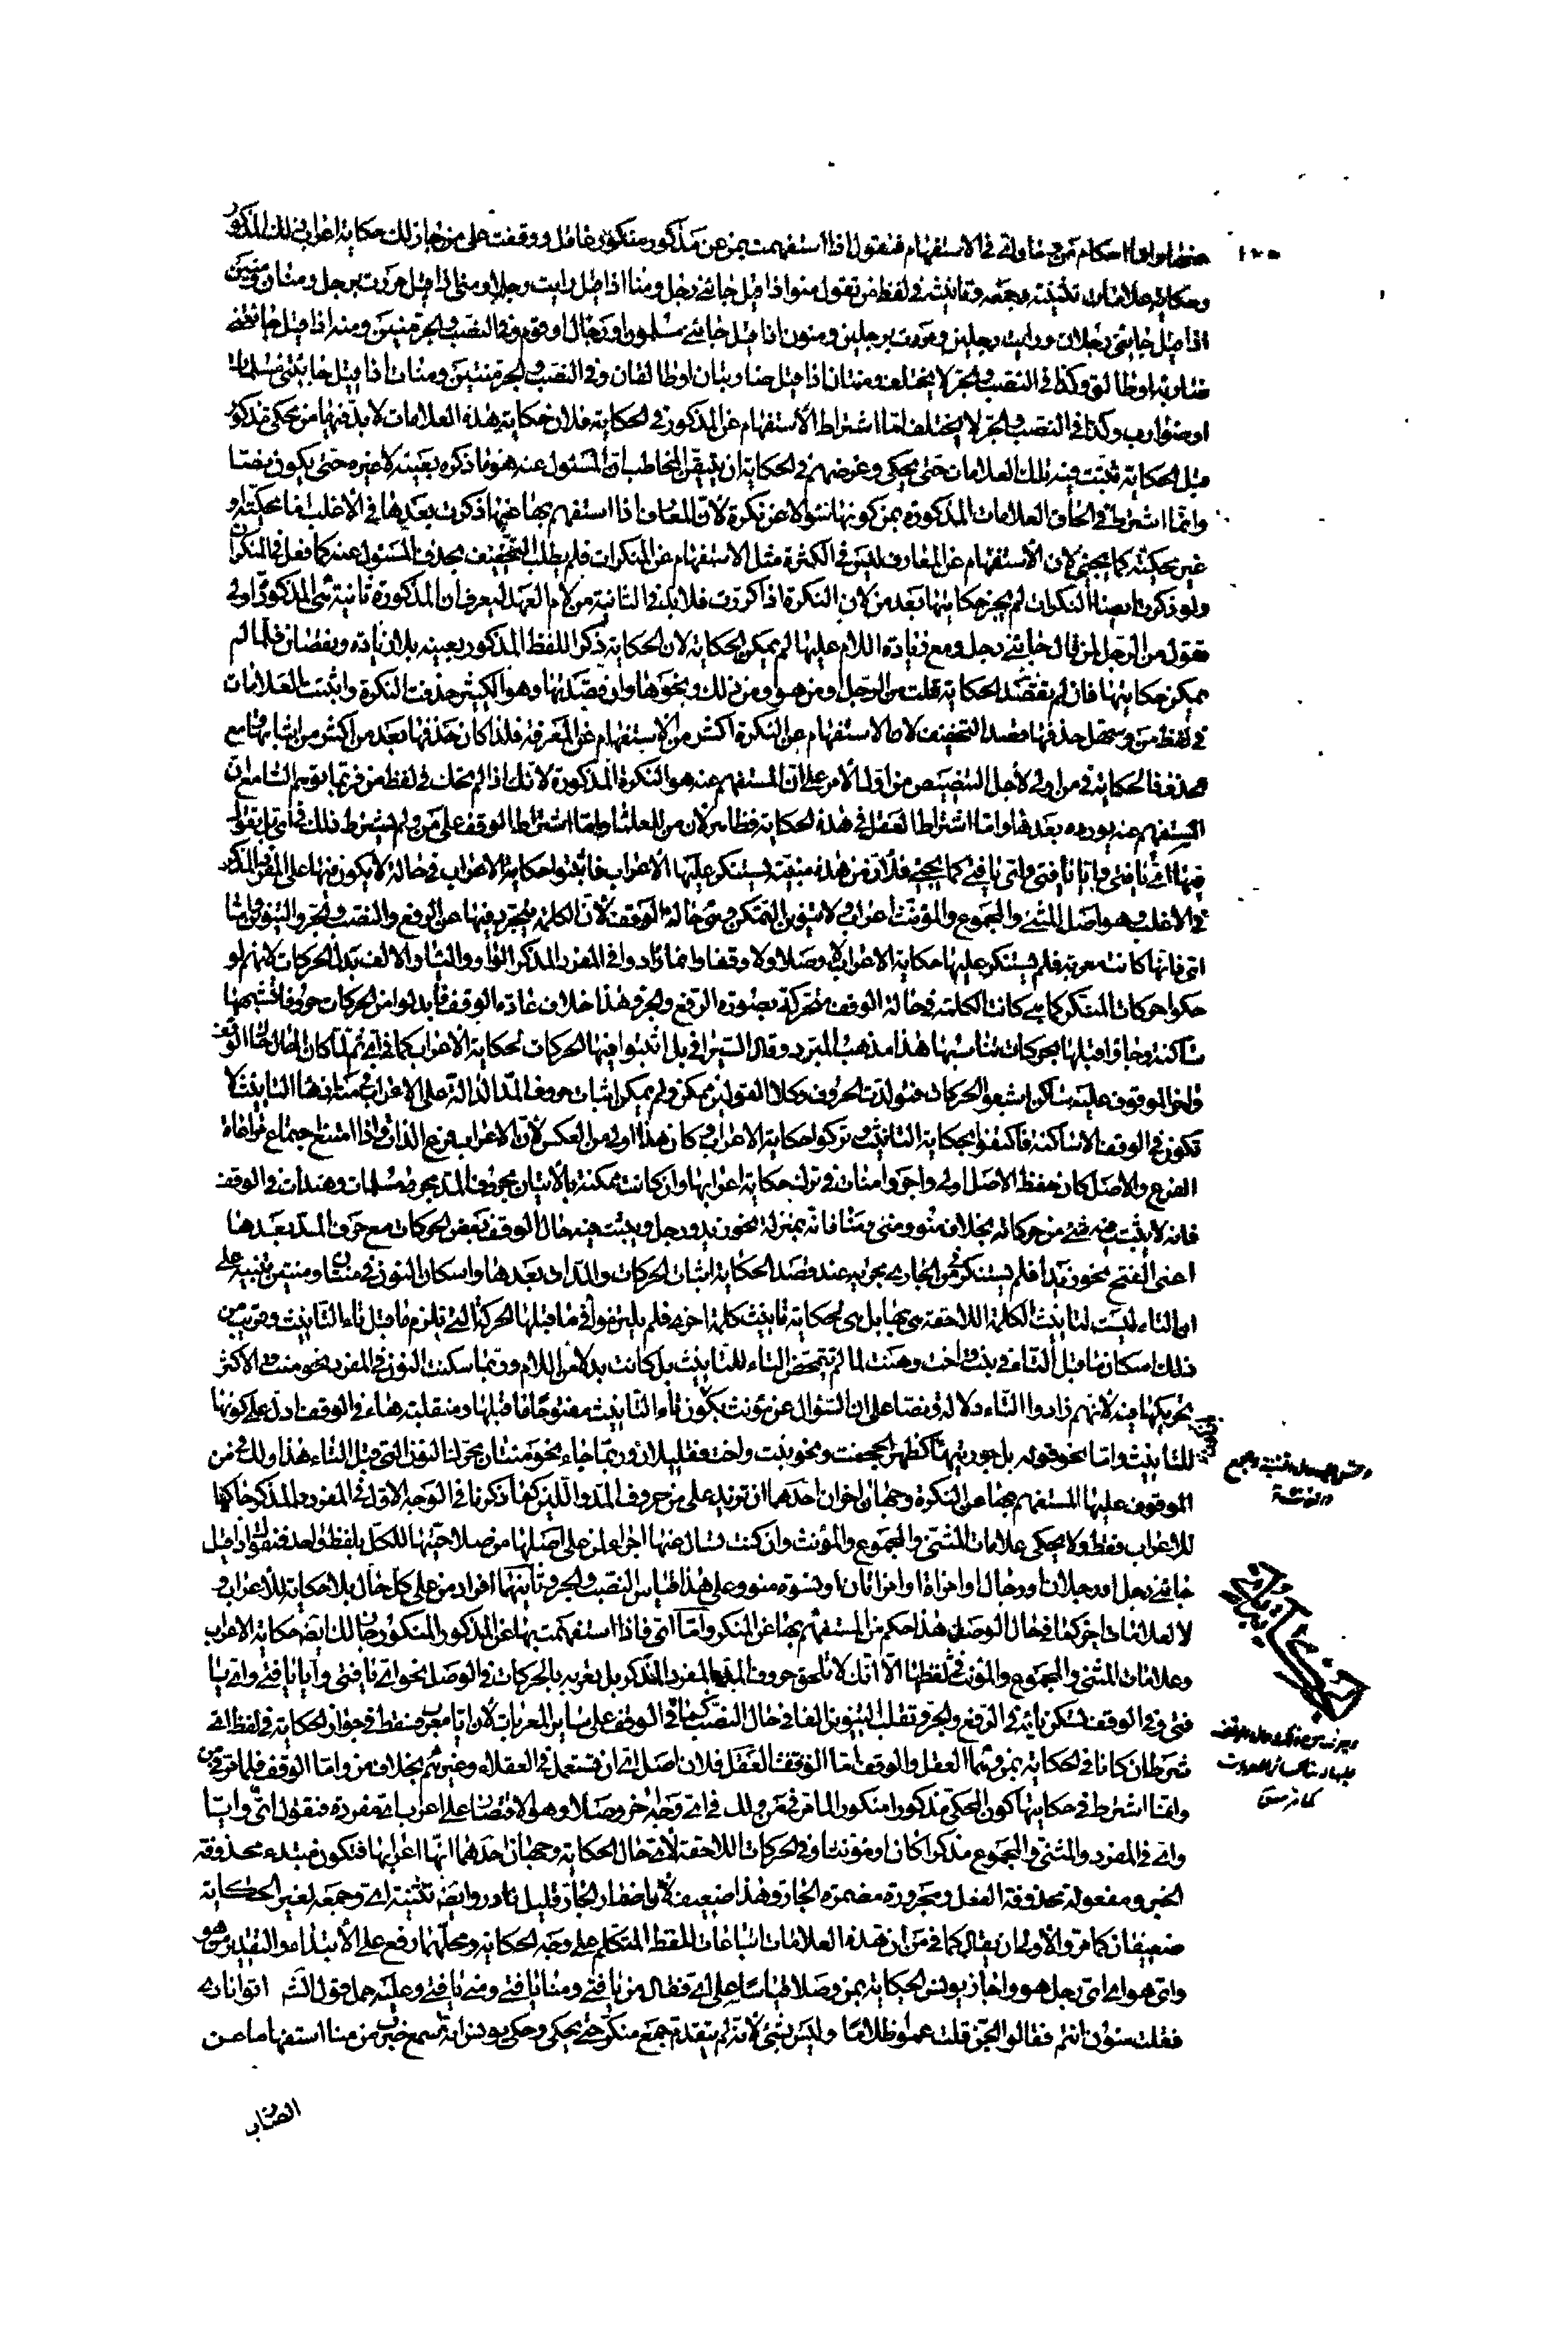 واما احكام من وما واي في الاستفهام فنقول اذا استفهمت بمن عن مذكور منكور عاقل ووقفت على من جاز لك حكاية اعراب ذلك المذكور
وحكاية علامات تثنيته وجمعه وتانيثه في لفظ من تقول منو اذا قيل جائني رجل ومنا اذا قيل رايت رجلا ومني اذا قيل مررت برجل ومنان ومنين
اذا قيل جائني رجلان ورايت رجلين ومررت برجلين ومنون اذا قيل جائني مسلمون او رجال او قوم وفي النصب والجر منين ومنه اذا قيل جائتني
ضاربة او طالق وكذا في النصب والجر لا يختلف ومنتان اذا قيل ضاربتان او طالقان وفي النصب والجر منتين ومنات اذا قيل جائتني مسلمات
او ضوارب وكذا في النصب والجر لا يختلف اما اشتراط الاستفهام عن المذكور في الحكاية فلان حكاية هذه العلامات لا بد فيها من محكي مذكور
قبل الحكاية تثبت فيه تلك العلامات حتى يحكى وغرضهم في الحكاية ان يتيقن المخاطب ان المسئول عنه هو ما ذكره بعينه لا غيره حتى يكون نصا
وانما اشترط في الحاق العلامات المذكورة بمن كونها سؤالا عن نكرة لان المعارف اذا استفهم بها عنها ذكرت بعدها في الاغلب اما محكية او
غير محكية كما يجئ لان الاستفهام عن المعارف ليس في الكثرة مثل الاستفهام عن المنكرات فلم يطلب التخفيف بحذف المسئول عنه كما فعل في المنكران
ولو ذكرت ايضا النكرات لم يجز حكايتها بعد من لان النكرة اذا كررت فلا بد في الثانية من لام العهد ليعرف ان المذكورة ثانية هي المذكورة اولى
تقول من الرجل لمن قال جائني رجل ومع زيادة اللام عليها لم يمكن الحكاية لان الحكاية ذكر اللفظ المذكور بعينه بلا زيادة ونقصان فلما لم
يمكن حكايتها فان لم يقصد الحكاية قلت من الرجل او من هو او من ذلك ونحوها وان قصدتها وهو الكثير حذفت النكرة واثبتت العلامات
في لفظ من وسهل حذفها قصد التخفيف لان الاستفهام عن النكرة اكثر من الاستفهام عن المعرفة فلذا كان حذفها بعد من اكثر من اثباتها مع
حذفها الحكاية في من اولى لاجل التنصيص من اول الامر على ان المستفهم عنه هو النكرة المذكورة لانك اذا لم تحك في لفظ من فربما يوهم السامع ان
المستفهم عنه يورده بعدها واما اشتراط العقل في هذه الحكاية فظاهر لان من للعلماء واما اشتراط الوقف على من ولم يشترط ذلك في اي بل يقول
فيها اي يا فتى وايا يا فتى واي يا فتى كما يجئ فلان من هذه مبنية يستنكر عليها الاعراب فاثبتوا حكاية الاعراب في حالة لا يكون فيها على المفرد المذكر
في الاغلب وهو اصل المثنى والمجموع والمؤنث اعراب ولا تنوين التمكن وهي حالة الوقف لان الكلمة يتجرد فيها عن الرفع والنصب والجر والتنوين واما
اي فانها كانت معربة فلم يستنكر عليها حكاية الاعراب لا وصلا ولا وقفا وانما زادوا في المفرد المذكر الواو والياء والالف بدل الحركات لانهم لو
حكوا حركات المنكر كما هي كانت الكلمة في حالة الوقف متحركة بصورة الرفع والجر وهذا خلاف عادة الوقف فابدلوا من الحركات حروفا تشبهها
ساكنة وجاؤا قبلها بحركات تناسبها هذا مذهب المبرد وقال السيرافي بل اثبتوا فيها الحركات لحكاية الاعراب كما في اي ثم لما كان الحال حال الوقف
واخر الموقوف عليه ساكن اشبعوا الحركات فتولدت الحروف وكلا القولين ممكن ولم يمكن اثبات حروف المد الدالة على الاعراب في منة لان هاء التانيث لا
تكون في الوقف الا ساكنة فاكتفوا بحكاية التانيث وتركوا حكاية الاعراب وكان هذا اولى من العكس لان الاعراب فرع الذات واذا امتنع اجتماع مراعاة
الفرع والاصل كان حفظ الاصل اولى واجروا منات في ترك حكاية اعرابها وان كانت ممكنة بالاتيان بحروف المد مجرى مسلمات وهندات في الوقف
فانه لا يثبت فيه شئ من حركاته بخلاف منو ومني ومنا فانه بمنزلة نحو زيد ورجل ويثبت فيه حال الوقف بعض الحركات مع حرف المد بعدها
اعنى الفتح نحو زيدا فلم يستنكر في من الجاري مجريه عند قصد الحكاية اثبات الحركات والمدات بعدها واسكان النون في منتان ومنتين تنبيه على
ان التاء ليست لتانيث الكلمة اللاحقة هي بها بل هي لحكاية تانيث كلمة اخرى فلم يلتزموا في ما قبلها الحركة التي تلزم ما قبل تاء التانيث وقريب من
ذلك اسكان ما قبل التاء في بنت واخت وهنت لما لم تتمحض التاء للتانيث بل كانت بدلا من اللام وربما سكنت النون في المفرد نحو منت والاكثر
تحريكها فيه لانهم ارادوا التاء دلالة ونصا على ان السؤال عن مؤنث بكون تاء التانيث مفتوحا ما قبلها ومنقلبة هاء في الوقف ادل على كونها
للتانيث واما نحو قوله بل جوز تيهاء كظهر الحجفت ونحو بنت واخت فقليلان وربما جاء نحو منتان بتحريك النون التي قبل التاء هذا ولك في من
الموقوف عليها المستفهم بها عن النكرة وجهان اخران احدهما ان تزيد على من حروف المد واللين كما ذكرنا في الوجه الاول في المفرد والمذكر حاكيا
للاعراب فقط ولا يحكى علامات المثنى والمجموع والمؤنث وان كنت تسال عنها اجراء لمن على اصلها من صلاحيتها للكل بلفظ واحد فتقول اذا قيل
جائني رجل او رجلان او رجال او امراة او امراتان او نسوة منو وعلى هذا قياس النصب والجر وثانيهما افراد من على كل حال بلا حكاية للاعراب و
لا لعلامات اخر كما في حال الوصل هذا حكم من المستفهم بها عن المنكر واما اي فاذا استفهمت بها عن المذكور المنكور جاز لك ايض حكاية الاعراب
وعلامات المثنى والمجموع والمؤنث في لفظها الا انك لا تلحق حروف المد المفرد المذكر بل يعربه بالحركات في الوصل نحو اي يا فتى وايا يا فتى واي يا
فتى وفي الوقف تسكن يائه في الرفع والجر وتقلب التنوين الفا في حال النصب كما في الوقف على سائر المعربات لان ايا معرب فسقط في جواز الحكاية في لفظ اي
شرطان كانا في الحكاية بمن وهما العقل والوقف اما الوقف العقل فلان اصل اي ان تستعمل في العقلاء وغيرهم بخلاف من واما الوقف فلما مر في من
وانما اشترط في حكايتها كون المحكي مذكورا منكورا لما مر في من ولك في اي وجه اخر وصلا وهو الاقتصار على اعراب اي مفردة فتقول اي وايا
واي في المفرد والمثنى والمجموع مذكرا كان او مؤنثا وفي الحركات اللاحقة لاي حال الحكاية وجهان احدهما انها اعرابها فتكون مبتدء محذوفة
الخبر ومفعولة محذوفة الفعل ومجرورة مضمرة الجار وهذا ضعيف لان اضمار الجار قليل نادر وايض تثنية اي وجمعه لغير الحكاية
ضعيفان كما مر والاولى ان يقال كما في من ان هذه العلامات اتباعات للفظ المتكلم على وجه الحكاية ومحلهما رفع على الابتداء والتقدير من هو
واي هو اي اي رجل هو واجاز يونس الحكاية بمن وصلا قياسا على اي فقال من يا فتى ومنا يا فتى ومني يا فتى وعليه حمل قول الش اتوا ناري
فقلت منون انتم فقالوا الجن قلت عموا ظلاما وليس بشئ لانه لم يتقدم جمع منكر حتى يحكى وحكى يونس انه سمع ضرب من منا استفهاما عن
الضارب